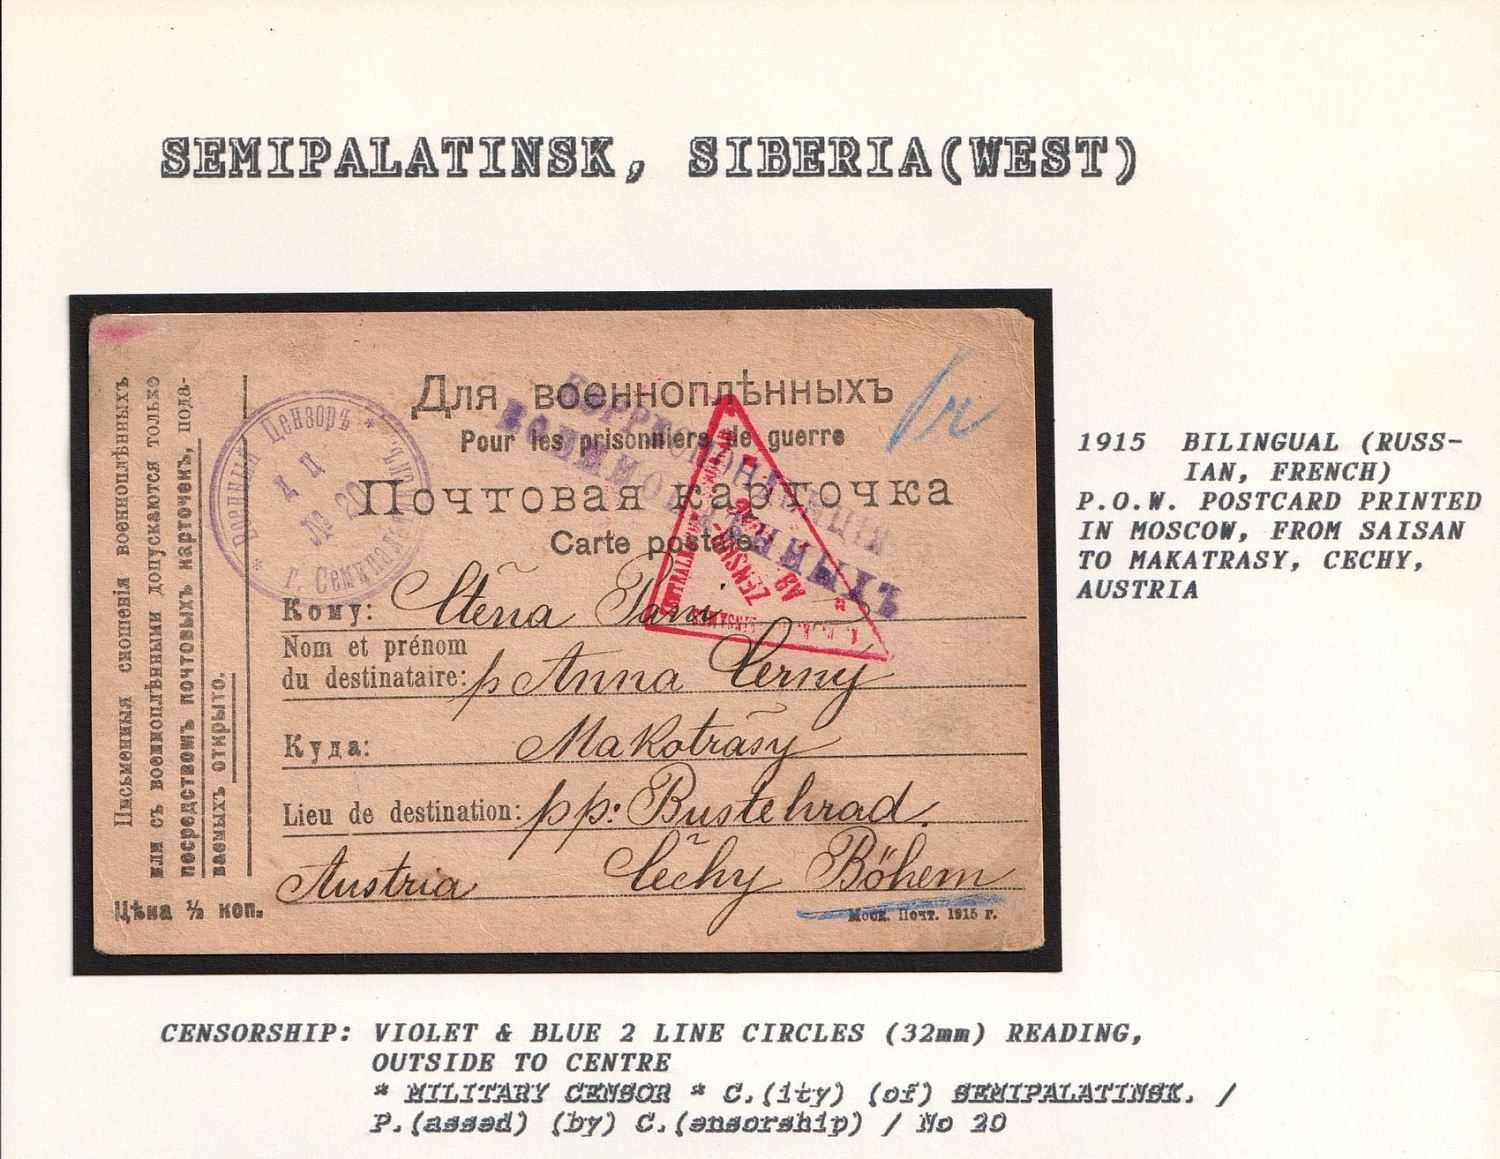 SEMIPALATINSK, SIBERIA(WEST)
Для военноплѣнныхъ
Pour les prisonniers de guerre
Почтовая карточка
Carte postale
КОРРЕСПОНДЕНЦІЯ
ВОЕННОПЛѢННЫХЪ
* Военный Цензоръ *
г. Семипалатинскъ
Д Ц
№ 20
ZENSUR-
Кому: Ctěna Paní
Nom et prénom
du destinataire: p Anna Černy
Куда: Makotrasy
Lieu de destination: pp: Bustehrad.
Austria Čechy Böhem
Моск. Почт. 1915 г.
Письменныя сношенія военноплѣнныхъ
или съ военноплѣнными допускаются только
посредствомъ почтовыхъ карточекъ, пода-
ваемыхъ открыто.
Цѣна ½ коп.
1915 BILINGUAL (RUSS-
IAN, FRENCH)
P.O.W. POSTCARD PRINTED
IN MOSCOW, FROM SAISAN
TO MAKATRASY, CECHY,
AUSTRIA
CENSORSHIP: VIOLET & BLUE 2 LINE CIRCLES (32mm) READING,
OUTSIDE TO CENTRE
* MILITARY CENSOR * C.(ity) (of) SEMIPALATINSK. /
P.(assed) (by) C.(ensorship) / No 20